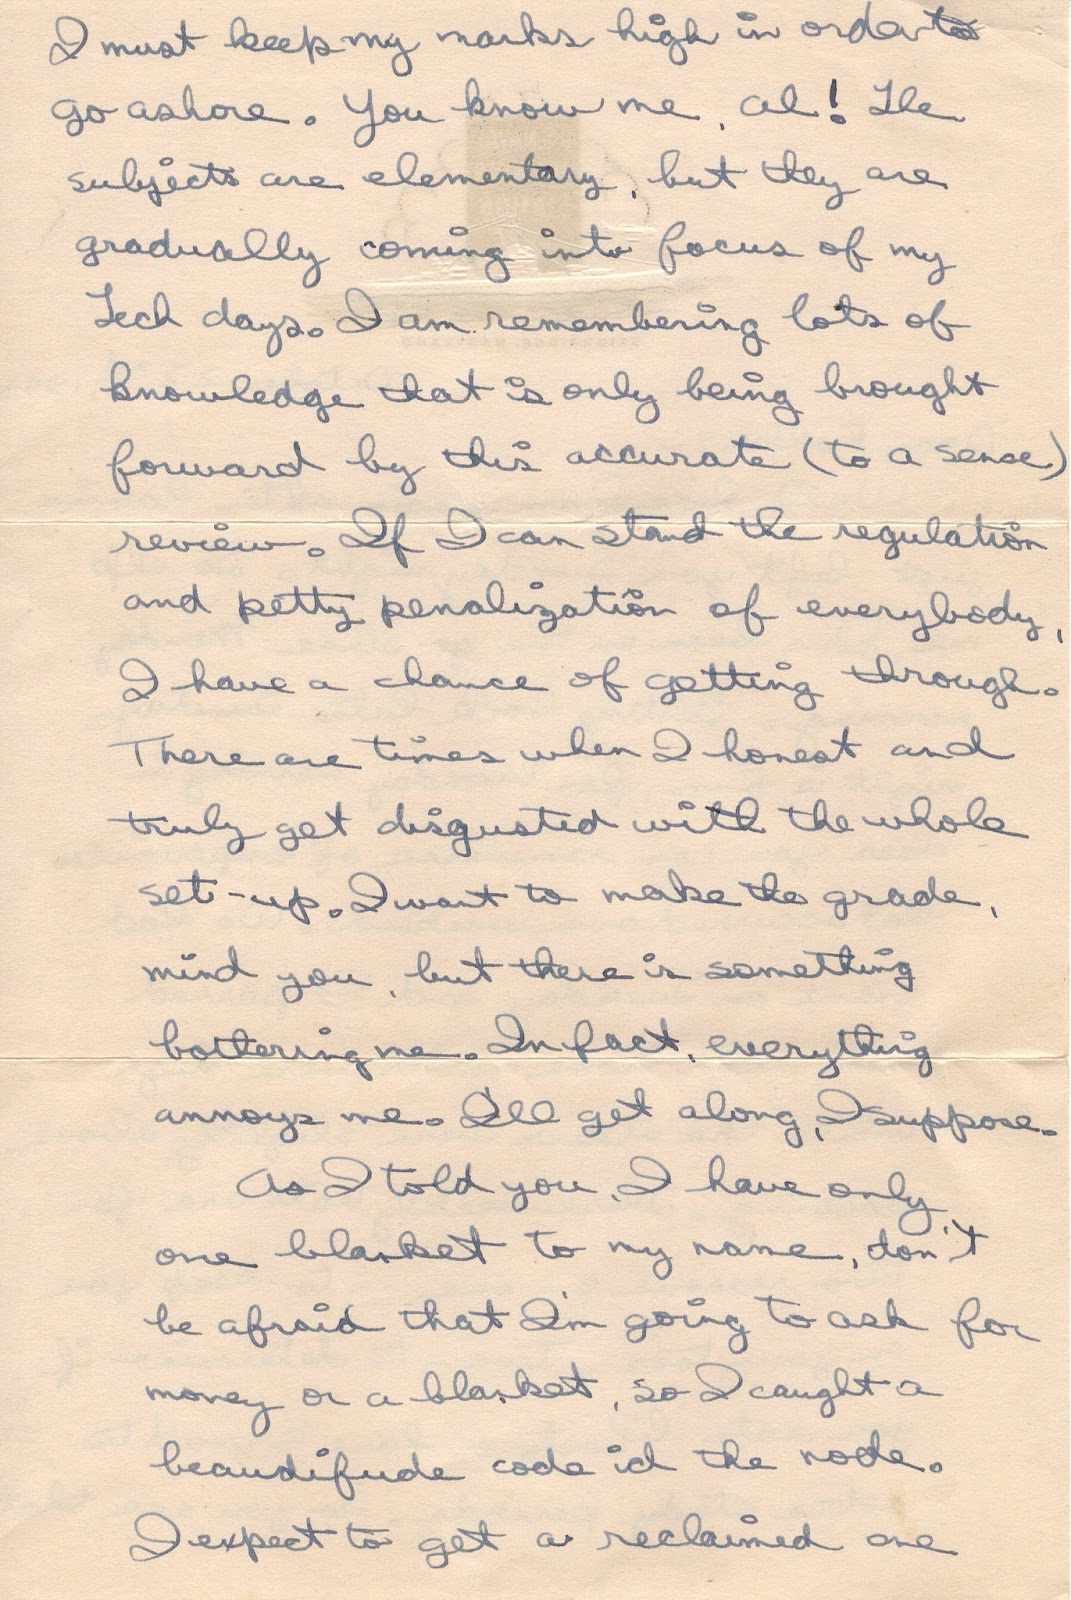 I must keep my marks high in order to
go ashore. You know me, al! The
subjects are elementary, but they are
gradually coming into focus of my
Tech days. I am remembering lots of
knowledge that is only being brought
forward by this accurate (to a sense)
review. If I can stand the regulation
and petty penalization of everybody,
I have a chance of getting through.
There are times when I honest and
truly get disgusted with the whole
set-up. I want to make the grade,
mind you, but there is something
bothering me. In fact, everything
annoys me. I'll get along, I suppose.
As I told you, I have only
one blanket to my name, don't
be afraid that I'm going to ask for
money or a blanket, so I caught a
beaudifude code id the node.
I expect to get a reclaimed one